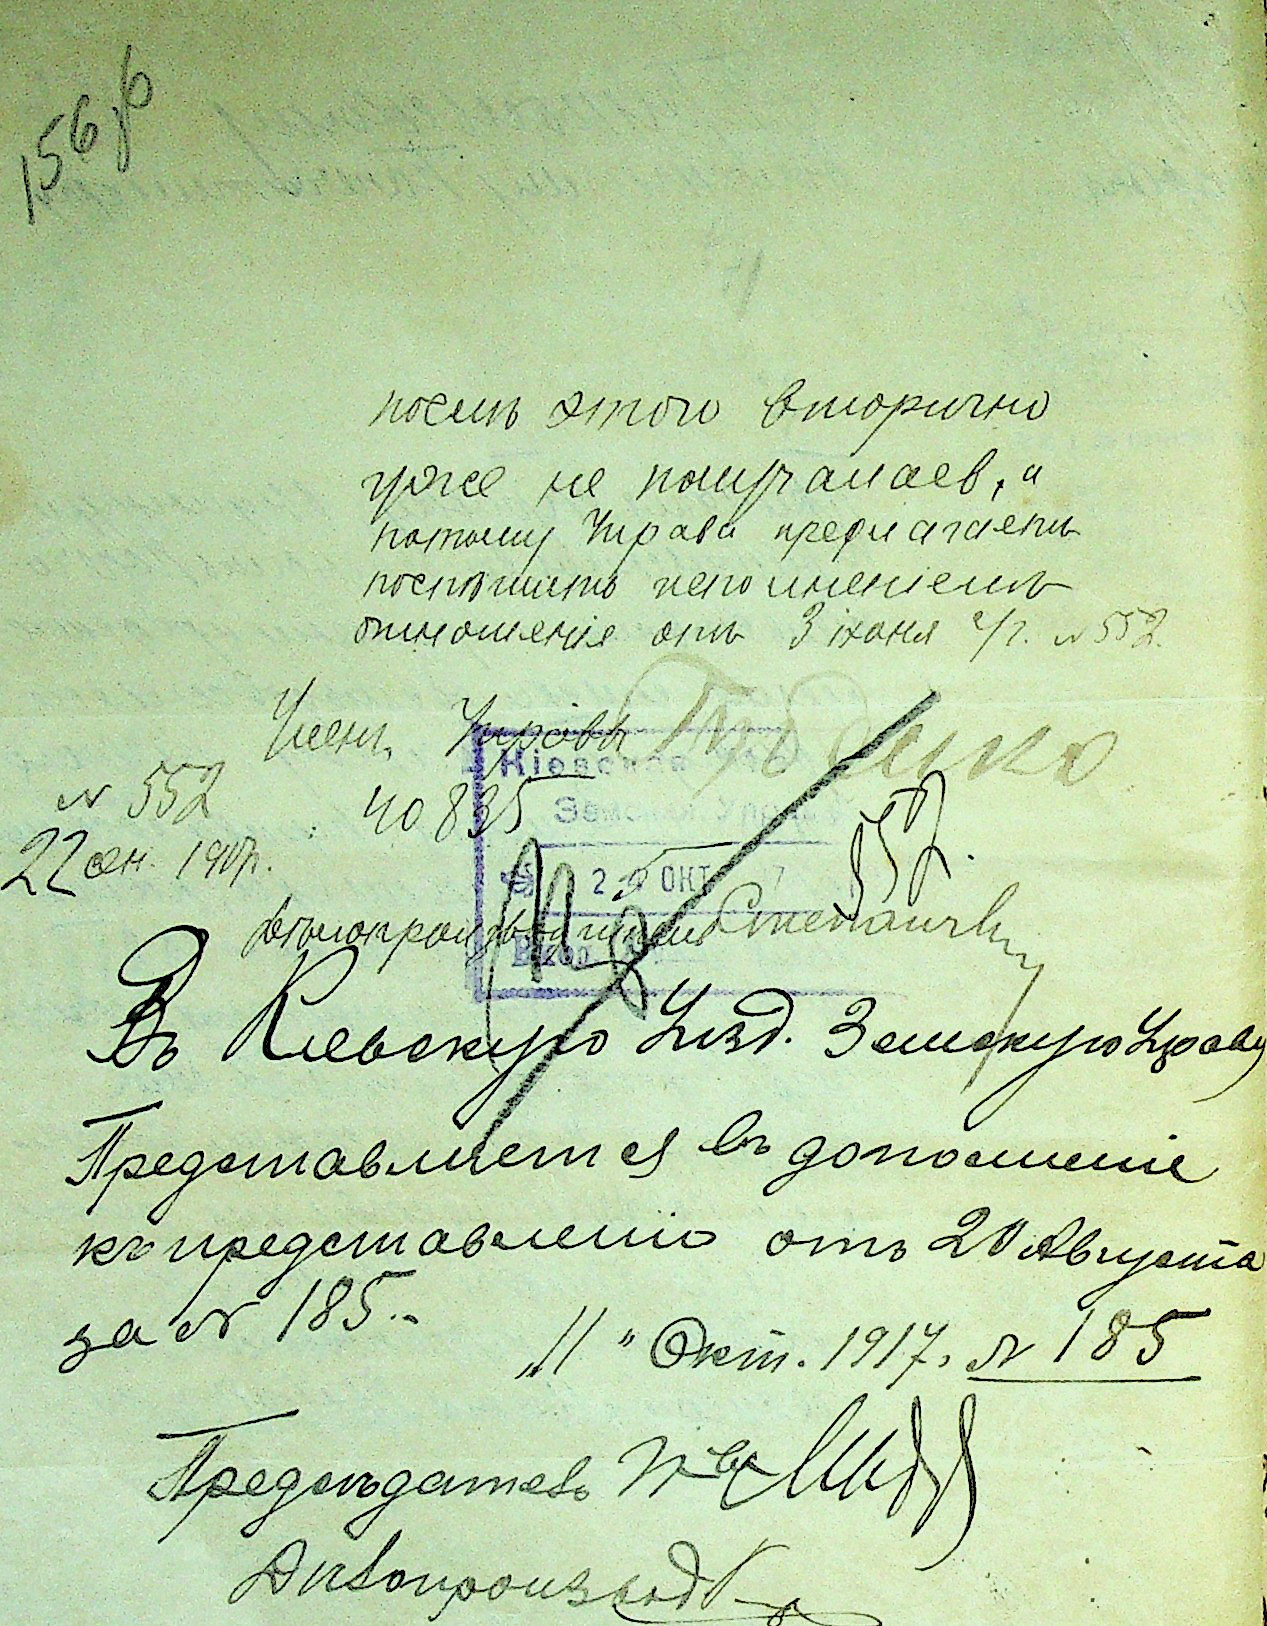 156 об
послѣ этого вторично
уже не получалась, а
потому Управа предлагаетъ
поспѣшить исполненіемъ
отношенія отъ 3 іюня с/г. № 552.
Членъ Управы
№ 552
40835
22 сен. 1917г.
Кіевская
Земская Управа
2 ОКТ 7
Вход
Дѣлопроизводитель
Въ Киевскую Уѣзд. Земскую Управу
Представляется въ дополненіе
къ представленію отъ 20 Августа
за № 185.
„11" Окт. 1917. № 185
Предсѣдатель
Дѣлопроизвод